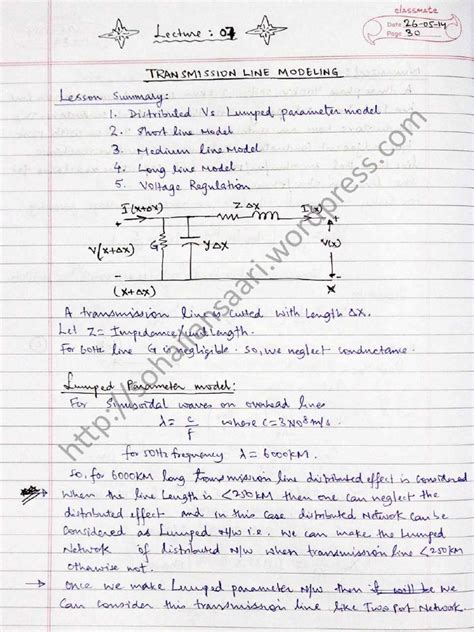 classmate
Date 26-05-14
Page 30
Lecture : 07
TRANSMISSION LINE MODELING
Lesson Summary:
1. Distributed Vs Lumped parameter model
2. Short line Model
3. Medium line Model
4. Long line Model
5. Voltage Regulation
I(x+Δx) ZΔx I(x)
+ +
V(x+Δx) G yΔx V(x)
- -
(x+Δx) x
A transmission line is cutted with length Δx.
Let Z = Impedance/unit length.
For 60Hz line G is negligible. so, we neglect conductance.
Lumped Parameter model:
For Sinusoidal waves on overhead lines
λ = c/f where c=3×10⁸m/s.
for 50Hz frequency λ = 6000KM
So, for 6000KM long transmission line distributed effect is considered
When the line Length is <250KM then one can neglect the
distributed effect and in this case distributed Network can be
Considered as Lumped N/W i.e. we can make the Lumped
Network of distributed N/W when transmission line <250KM
otherwise not.
→ Once we make Lumped parameter N/W then it will be we
Can consider this transmission line like Two Port Network.
http://sohailansaari.wordpress.com